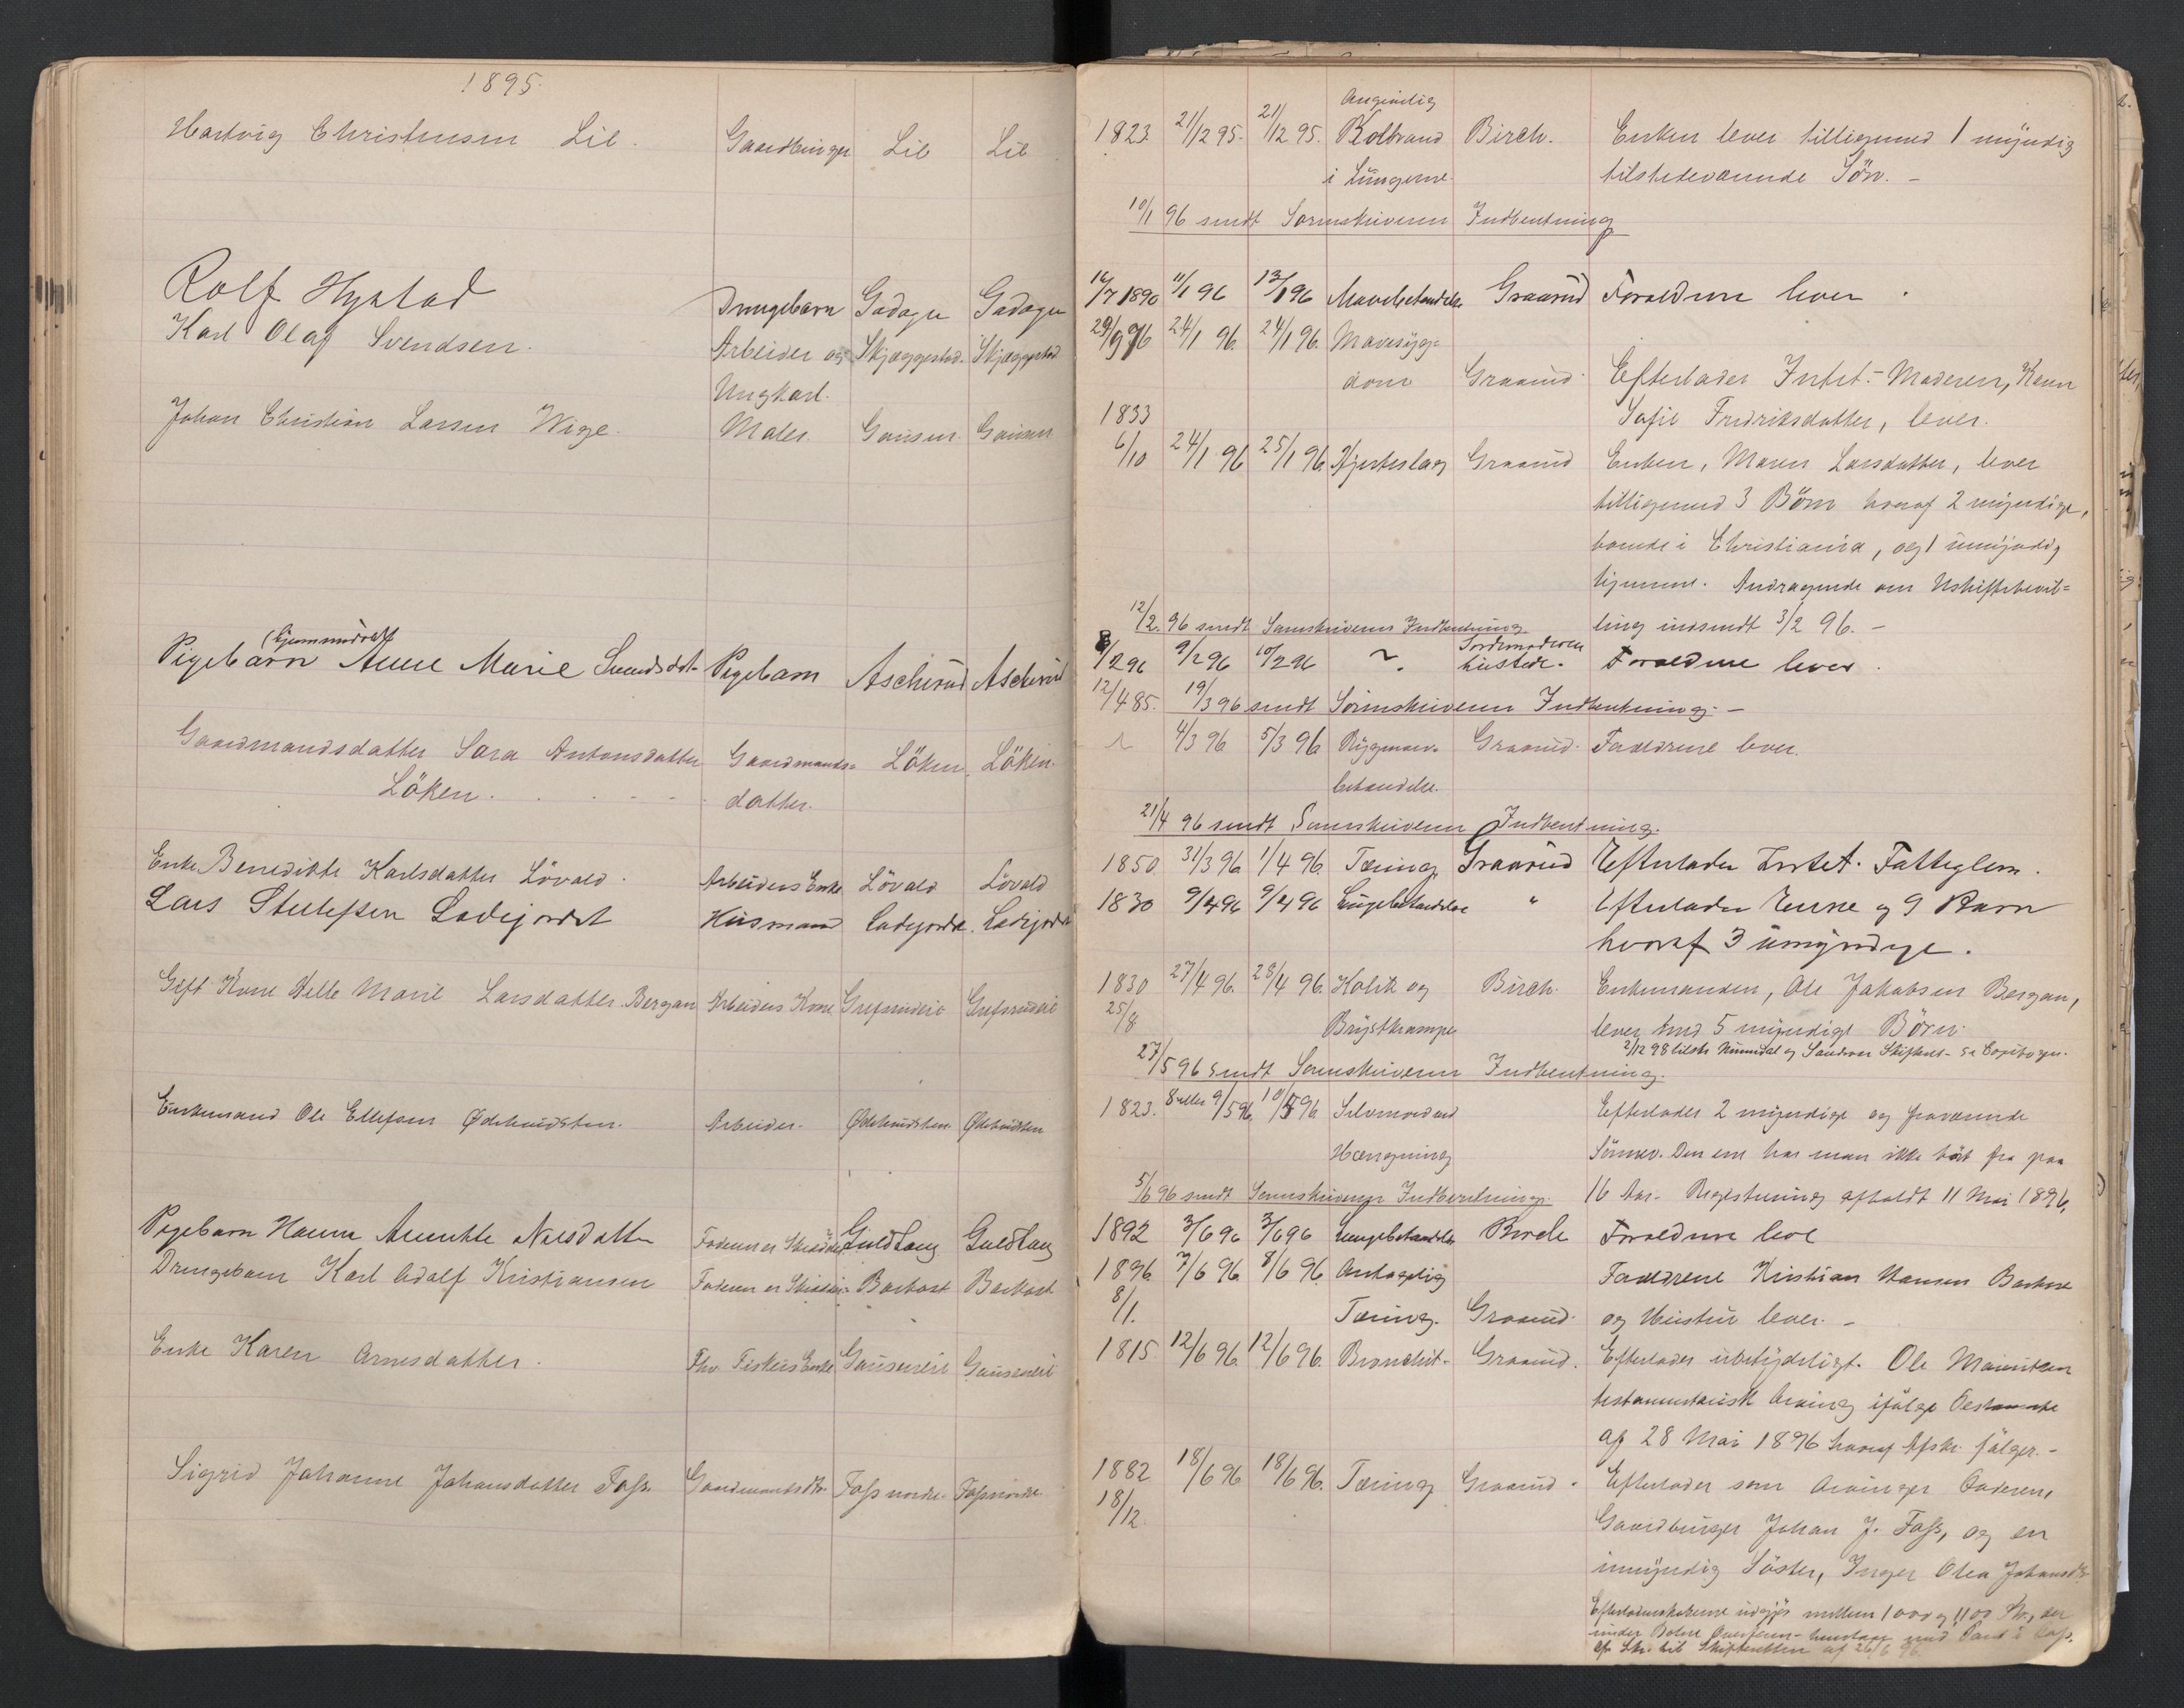 1895.
Hartvig Christensen Lie. Gaardbruger Lie Lie
Rolf Hystad Drengebarn Gadager Gadager
Karl Olaf Svendsen. Arbeider og Skjæggestad. Skjæggestad
Ungkarl.
Johan Christian Larsen Wige. Maler. Gausen. Gausen
(hjemmedøbt
Pigebarn Anne Marie Svendsdt. Pigebarn Ascherud Ascherud
Gaardmandsdatter Sara Antonsdatter Gaardmands= Löken. Löken.
Löken. datter.
Enke Benedikte Karlsdatter Lövald. Arbeiders Enke Lövald Lövald
Lars Ladejordet Husmand Ladejordet. Ladejordet
Gift Kone Helle Marie Larsdatter Bergan Arbeiders Kone Grefsrudeie Grefsrudeie
Enkemand Ole Ellefsen Arbeider.
Pigebarn Hanna Nilsdatter Faderen er
Drengebarn Karl Adolf Kristiansen Faderen er
Enke Karen Arnesdatter. Fhv. Fiskers Enke Gauseneie Gauseneie
Sigrid Johanne Johansdatter Foss. Gaardmandsdtr. Foss nordre. Foss nordre
Angivelig
1823. 21/12 95. 21/12 95. Koldbrand Birch. Enken lever tilligemed 1 myndig
i Lungerne. tilstedeværende Sön. -
10/1 96 sendt Sorenskriveren Indberetning
16/7 1890 11/1 96 13/1 96 Mavebetændelse Graarud Forældrene lever.
29/9 76 24/1 96. 24/1 96. Mavesyg=
dom Graarud. Efterlader Intet. - Moderen, Karen
1833 Sofie Fredriksdatter, lever.
6/10 24/1 96 25/1 96. Hjerteslag Graarud Enken, Maren Larsdatter, lever
tilligemed 3 Börn hvoraf 2 myndige,
boende i Christiania, og 1 umyndig
hjemme. Andragende om Uskiftebevil=
12/2. 96 sendt Sorenskriveren Indberetning ling indsendt 3/2 96. -
8/2 96 9/2 96 10/2 96 Jordemoderen
tilstede. Forældrene lever.
12/4 85. 19/3 96 sendt Sorenskriveren Indberetning. -
4/3 96 5/3 96 Rygmarvs Graarud. Forældrene lever.
betændelse.
21/4 96 sendt Sorenskriveren Indberetning.
1850. 31/3 96 1/4 96. Tæring Graarud Efterlader Intet. Fattiglem.
1830 9/4 96 9/4 96 Lungebetændelse " Efterlader Enke og 9 Barn
hvoraf 3 umyndige.
1830 27/4 96. 28/4 96. Kolik og Birch. Enkemanden, Ole Jakobsen Bergan,
25/8 Brystkrampe lever med 5 myndige Börn.
2/12 98 og Skifteret. Se Copibogen.
27/5 96 sendt Sorenskriveren Indberetning.
1823. 8 eller 9/5 96. 10/5 96 Selvmord ved Efterlader 2 myndige og fraværende
Hængning Sönner. Den ene har man ikke hört fra paa
5/6 96 sendt Sorenskriveren Indberetning. 16 Aar. Registrering afholdt 11 Mai 1896.
1892 3/6 96 3/6 96 Lungebetændelse Birch Forældrene leve
1896 7/6 96. 8/6 96. Antagelig Forældrene Kristian Hansen
8/1. Tæring. Graarud. og Hustru lever. -
1815 12/6 96. 12/6 96. Bronchit. Graarud. Efterlader ubetydeligt. Ole Mauritsen
testamentarisk Arving ifölge Testamente
af 28 Mai 1896 hvoraf Afskr. fölger. -
1882 18/6 96 18/6 96. Tæring Graarud. Efterlader som Arvinger Faderen,
18/12. Gaardbruger Johan J. Foss, og en
umyndig Söster, Inger Olea Johansdtr.
Efterladenskaberne udgjör mellem 1000 og 1100 Kr., der
under
Skr. til Skifteretten af 26/6 96.